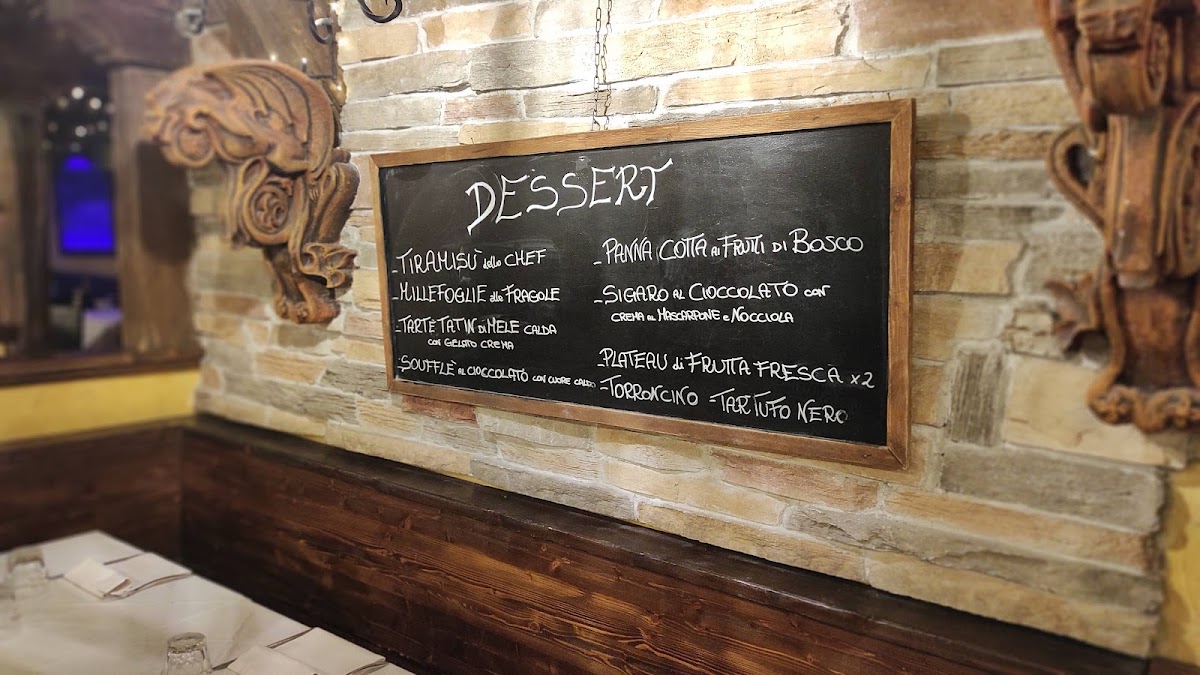 DESSERT
- TIRAMISÙ dello CHEF
- MILLEFOGLIE alle FRAGOLE
- TARTÈ TATIN DI MELE CALDA
CON GELATO CREMA
- SOUFFLÈ AL CIOCCOLATO CON CUORE CALDO
- PANNA COTTA AI FRUTTI DI BOSCO
- SIGARO AL CIOCCOLATO CON
CREMA AL MASCARPONE E NOCCIOLA
- PLATEAU di FRUTTA FRESCA x2
- TORRONCINO - TARTUFO NERO